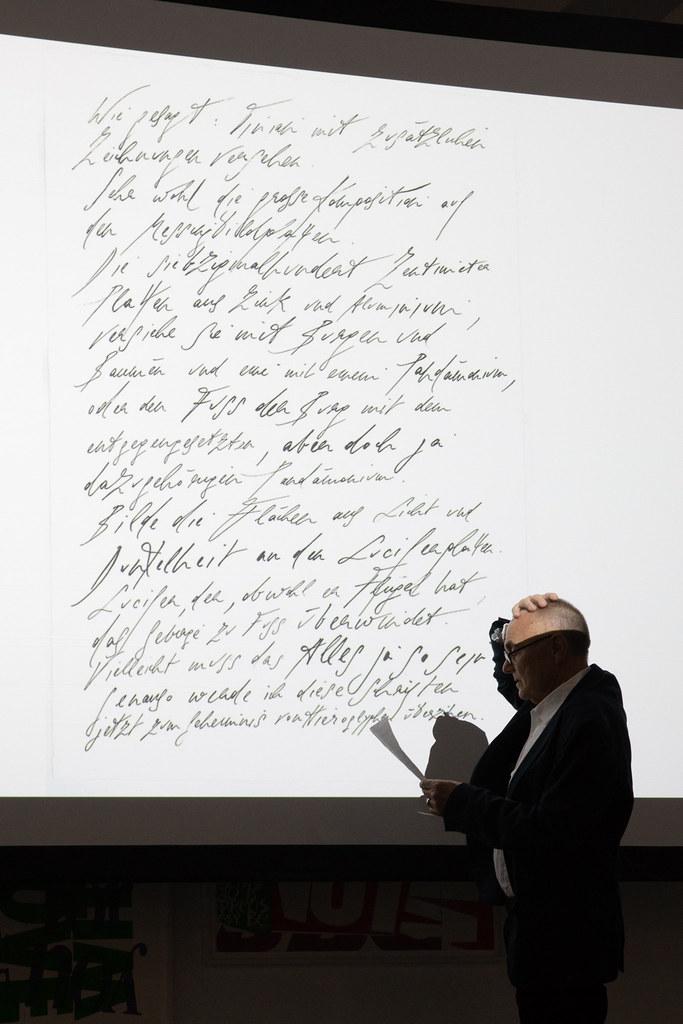 Wie gesagt: mit zusätzlichen
Zeichnungen versehen.
Sehe wohl die grosse Komposition auf
den Messingbildplatten.
Die siebzigmalhundert Zentimeter
Platten aus Zink und Aluminium,
versiehe sie mit Burgen und
Bäumen und eine mit einem Pandämonium,
oder den Fuss der Burg mit dem
entgegengesetzten, aber doch ja
dazugehörigen Pandämonium.
Bilde die Flächen aus Licht und
Dunkelheit an den Luciferplatten.
Lucifer, der, obwohl er Flügel hat,
das Gebirge zu Fuss überwindet.
Vielleicht muss das Alles ja so sein
genauso werde ich diese Schriften
jetzt zum Geheimnis von Hieroglyphen überziehen.